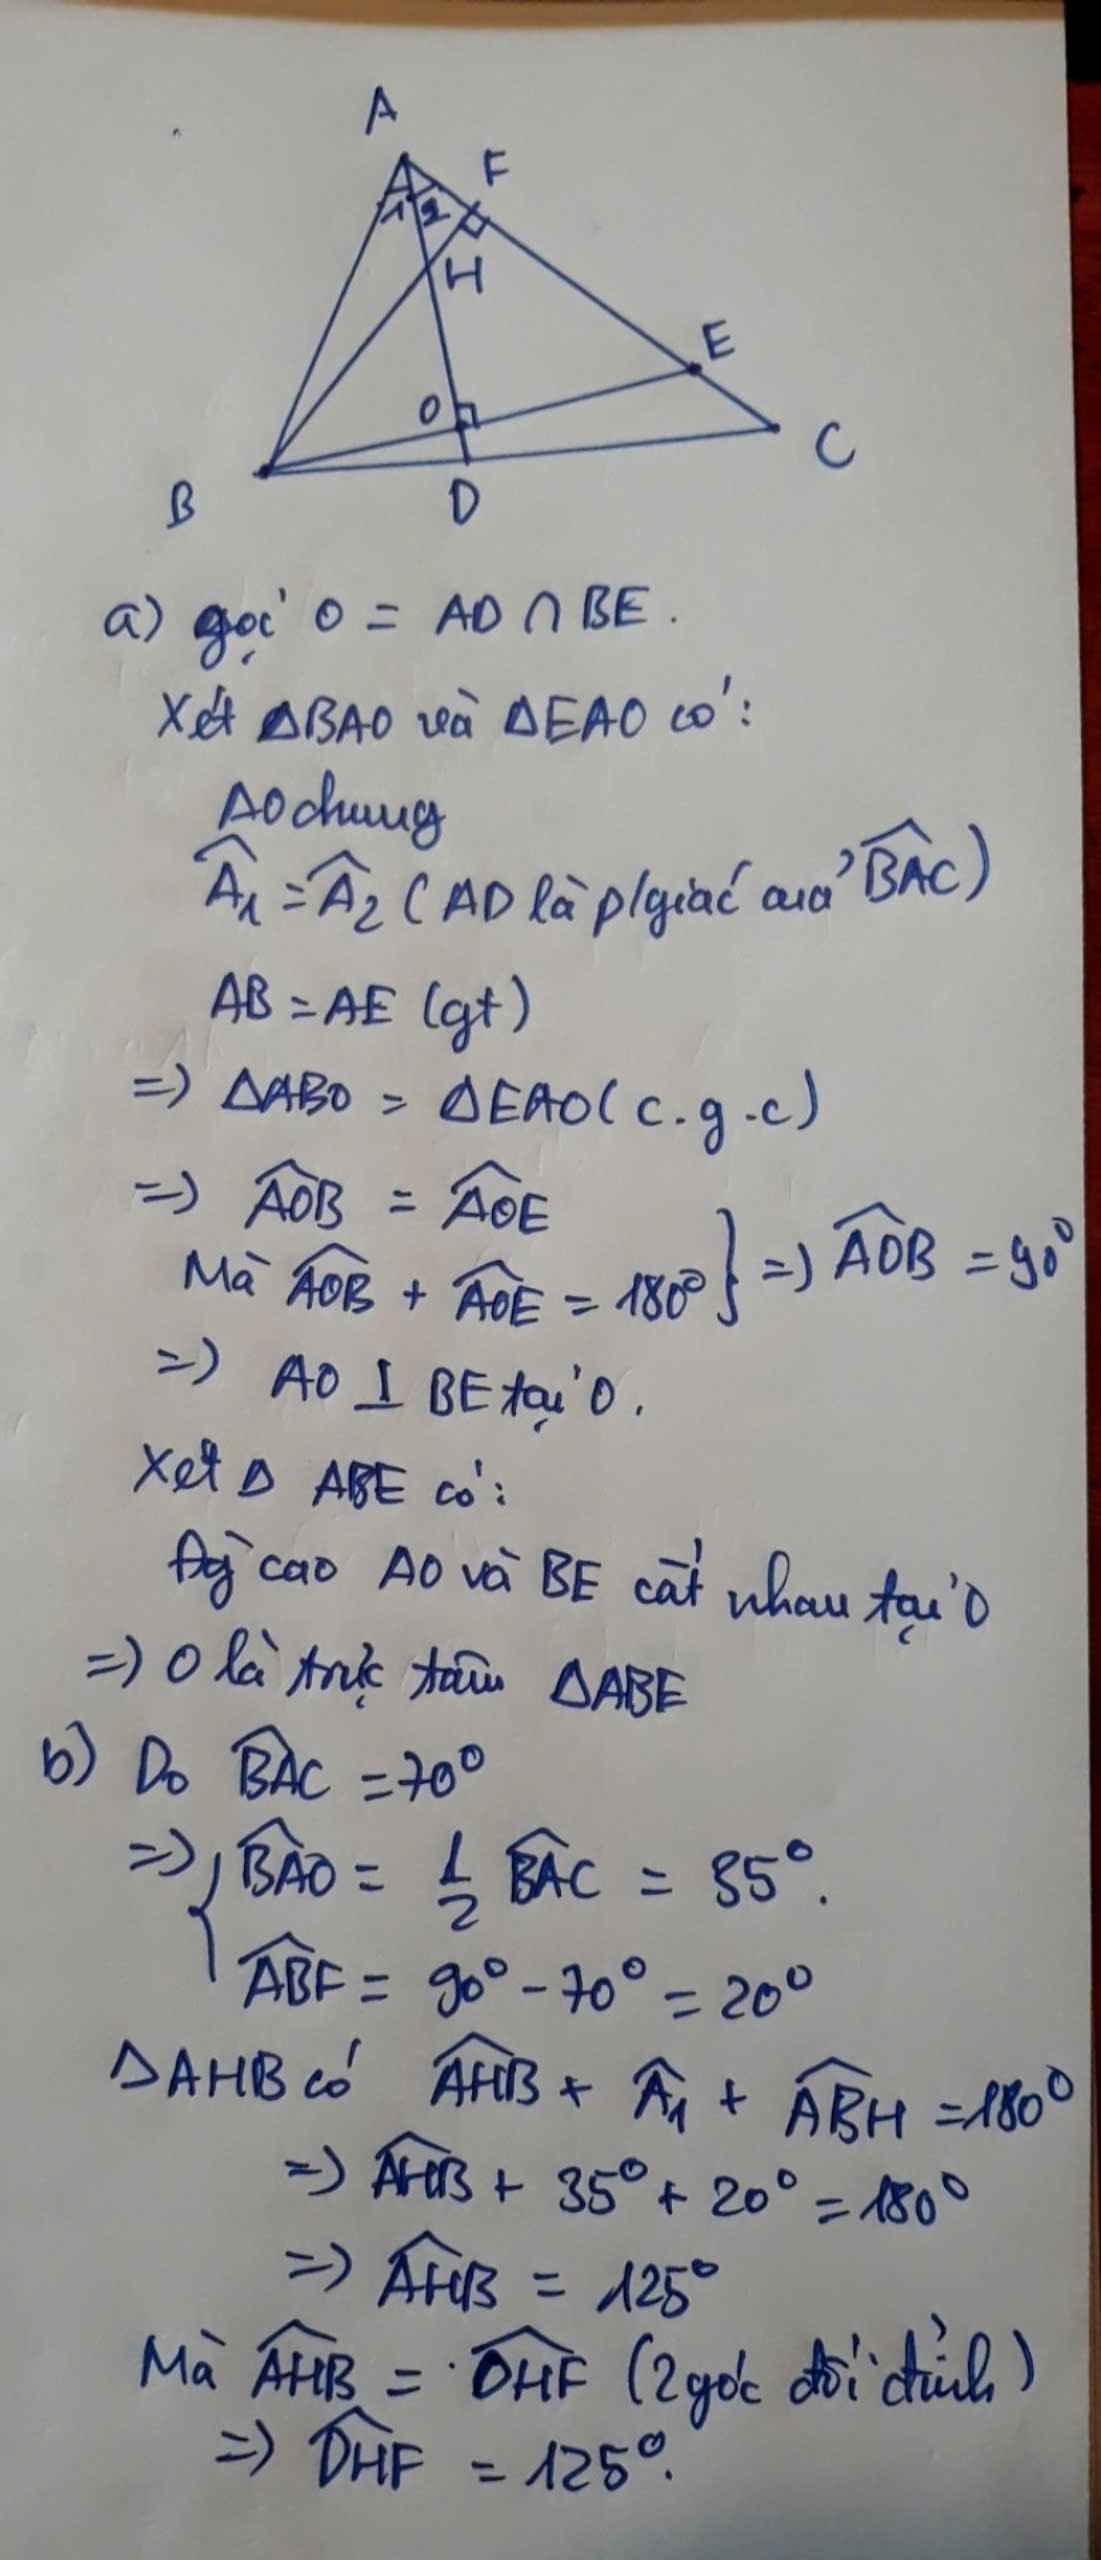 A
F
1 2
H
E
O
C
B
D
a) gọi O = AD ∩ BE.
Xét ΔBAO và ΔEAO có:
AO chung
Â₁ = Â₂ (AD là p/giác của \widehat{BAC})
AB = AE (gt)
=> ΔABO = ΔEAO (c.g.c)
=> \widehat{AOB} = \widehat{AOE}
Mà \widehat{AOB} + \widehat{AOE} = 180⁰ } => \widehat{AOB} = 90⁰
=> AO ⊥ BE tại O.
Xét Δ ABE có:
Đg` cao AO và BE cắt nhau tại O
=> O là trực tâm ΔABE
b) Do \widehat{BAC} = 70⁰
=> { \widehat{BAO} = 1/2 \widehat{BAC} = 35⁰.
\widehat{ABF} = 90⁰ - 70⁰ = 20⁰
ΔAHB có \widehat{AHB} + Â₁ + \widehat{ABH} = 180⁰
=> \widehat{AHB} + 35⁰ + 20⁰ = 180⁰
=> \widehat{AHB} = 125⁰
Mà \widehat{AHB} = \widehat{DHF} (2 góc đối đỉnh)
=> \widehat{DHF} = 125⁰.